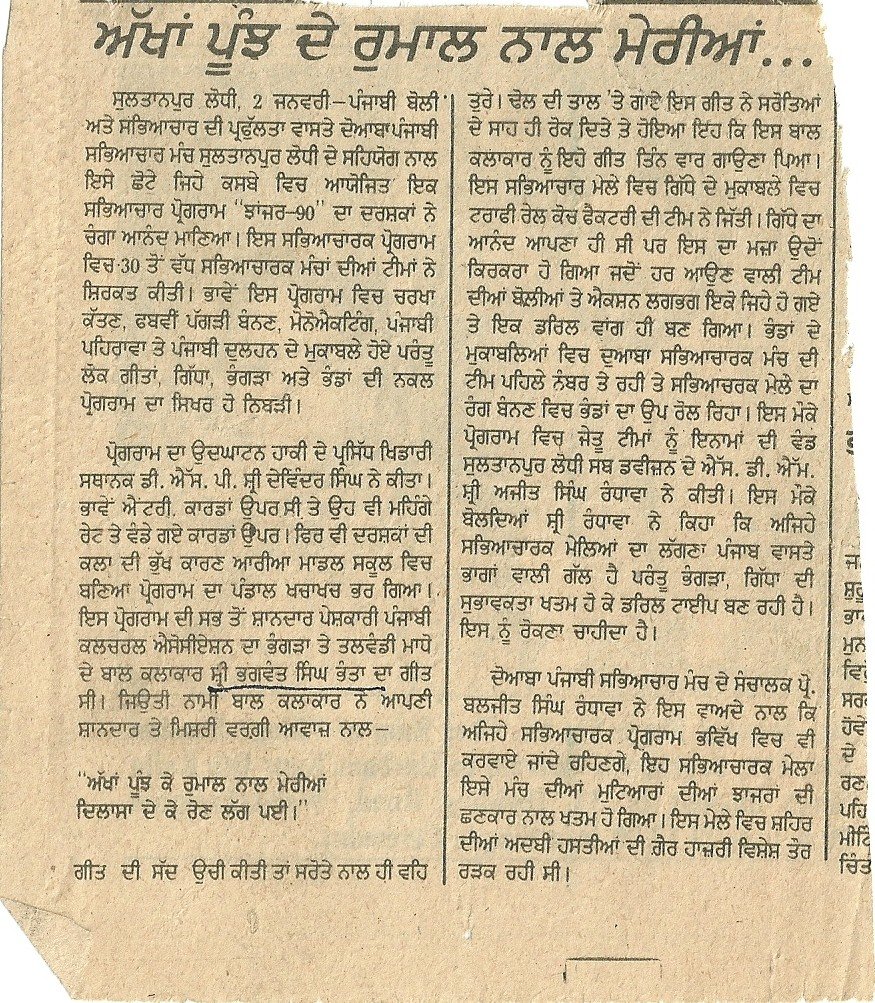 ਅੱਖਾਂ ਪੂੰਝ ਦੇ ਰੁਮਾਲ ਨਾਲ ਮੇਰੀਆਂ...
ਸੁਲਤਾਨਪੁਰ ਲੋਧੀ, 2 ਜਨਵਰੀ–ਪੰਜਾਬੀ ਬੋਲੀ
ਅਤੇ ਸਭਿਆਚਾਰ ਦੀ ਪ੍ਰਫੁੱਲਤਾ ਵਾਸਤੇ ਦੋਆਬਾਪੰਜਾਬੀ
ਸਭਿਆਚਾਰ ਮੰਚ ਸੁਲਤਾਨਪੁਰ ਲੋਧੀ ਦੇ ਸਹਿਯੋਗ ਨਾਲ
ਇਸੇ ਛੋਟੇ ਜਿਹੇ ਕਸਬੇ ਵਿਚ ਆਯੋਜਿਤ ਇਕ
ਸਭਿਆਚਾਰ ਪ੍ਰੋਗਰਾਮ "ਝਾਂਜਰ–90" ਦਾ ਦਰਸ਼ਕਾਂ ਨੇ
ਚੰਗਾ ਆਨੰਦ ਮਾਣਿਆ। ਇਸ ਸਭਿਆਚਾਰਕ ਪ੍ਰੋਗਰਾਮ
ਵਿਚ 30 ਤੋਂ ਵੱਧ ਸਭਿਆਚਾਰਕ ਮੰਚਾਂ ਦੀਆਂ ਟੀਮਾਂ ਨੇ
ਸ਼ਿਰਕਤ ਕੀਤੀ। ਭਾਵੇਂ ਇਸ ਪ੍ਰੋਗਰਾਮ ਵਿਚ ਚਰਖਾ
ਕੱਤਣ, ਫਬਵੀਂ ਪੱਗੜੀ ਬੰਨਣ, ਮੋਨੋਐਕਟਿੰਗ, ਪੰਜਾਬੀ
ਪਹਿਰਾਵਾ ਤੇ ਪੰਜਾਬੀ ਦੁਲਹਨ ਦੇ ਮੁਕਾਬਲੇ ਹੋਏ ਪਰੰਤੂ
ਲੋਕ ਗੀਤਾਂ, ਗਿੱਧਾ, ਭੰਗੜਾ ਅਤੇ ਭੰਡਾਂ ਦੀ ਨਕਲ
ਪ੍ਰੋਗਰਾਮ ਦਾ ਸਿਖਰ ਹੋ ਨਿਬੜੀ।
ਪ੍ਰੋਗਰਾਮ ਦਾ ਉਦਘਾਟਨ ਹਾਕੀ ਦੇ ਪ੍ਰਸਿੱਧ ਖਿਡਾਰੀ
ਸਥਾਨਕ ਡੀ. ਐੱਸ. ਪੀ. ਸ਼੍ਰੀ ਦੇਵਿੰਦਰ ਸਿੰਘ ਨੇ ਕੀਤਾ।
ਭਾਵੇਂ ਐਂਟਰੀ. ਕਾਰਡਾਂ ਉਪਰ ਸੀ ਤੇ ਉਹ ਵੀ ਮਹਿੰਗੇ
ਰੇਟ ਤੇ ਵੰਡੇ ਗਏ ਕਾਰਡਾਂ ਉਪਰ। ਫਿਰ ਵੀ ਦਰਸ਼ਕਾਂ ਦੀ
ਕਲਾ ਦੀ ਭੁੱਖ ਕਾਰਣ ਆਰੀਆ ਮਾਡਲ ਸਕੂਲ ਵਿਚ
ਬਣਿਆ ਪ੍ਰੋਗਰਾਮ ਦਾ ਪੰਡਾਲ ਖਚਾਖਚ ਭਰ ਗਿਆ।
ਇਸ ਪ੍ਰੋਗਰਾਮ ਦੀ ਸਭ ਤੋਂ ਸ਼ਾਨਦਾਰ ਪੇਸ਼ਕਾਰੀ ਪੰਜਾਬੀ
ਕਲਚਰਲ ਐਸੋਸੀਏਸ਼ਨ ਦਾ ਭੰਗੜਾ ਤੇ ਤਲਵੰਡੀ ਮਾਧੋ
ਦੇ ਬਾਲ ਕਲਾਕਾਰ ਸ਼੍ਰੀ ਭਗਵੰਤ ਸਿੰਘ ਭੰਤਾ ਦਾ ਗੀਤ
ਸੀ। ਜਿਉਤੀ ਨਾਮੀ ਬਾਲ ਕਲਾਕਾਰ ਨੇ ਆਪਣੀ
ਸ਼ਾਨਦਾਰ ਤੇ ਮਿਸ਼ਰੀ ਵਰਗੀ ਆਵਾਜ਼ ਨਾਲ–
"ਅੱਖਾਂ ਪੂੰਝ ਕੇ ਰੁਮਾਲ ਨਾਲ ਮੇਰੀਆਂ
ਦਿਲਾਸਾ ਦੇ ਕੇ ਰੋਣ ਲੱਗ ਪਈ।"
ਗੀਤ ਦੀ ਸੱਦ ਉਚੀ ਕੀਤੀ ਤਾਂ ਸਰੋਤੇ ਨਾਲ ਹੀ ਵਹਿ
ਤੁਰੇ। ਢੋਲ ਦੀ ਤਾਲ 'ਤੇ ਗਾਏ ਇਸ ਗੀਤ ਨੇ ਸਰੋਤਿਆਂ
ਦੇ ਸਾਹ ਹੀ ਰੋਕ ਦਿਤੇ ਤੇ ਹੋਇਆ ਇਹ ਕਿ ਇਸ ਬਾਲ
ਕਲਾਕਾਰ ਨੂੰ ਇਹੋ ਗੀਤ ਤਿੰਨ ਵਾਰ ਗਾਉਣਾ ਪਿਆ।
ਇਸ ਸਭਿਆਚਾਰ ਮੇਲੇ ਵਿਚ ਗਿੱਧੇ ਦੇ ਮੁਕਾਬਲੇ ਵਿਚ
ਟਰਾਫੀ ਰੇਲ ਕੋਚ ਫੈਕਟਰੀ ਦੀ ਟੀਮ ਨੇ ਜਿੱਤੀ। ਗਿੱਧੇ ਦਾ
ਆਨੰਦ ਆਪਣਾ ਹੀ ਸੀ ਪਰ ਇਸ ਦਾ ਮਜ਼ਾ ਉਦੋਂ
ਕਿਰਕਰਾ ਹੋ ਗਿਆ ਜਦੋਂ ਹਰ ਆਉਣ ਵਾਲੀ ਟੀਮ
ਦੀਆਂ ਬੋਲੀਆਂ ਤੇ ਐਕਸ਼ਨ ਲਗਭਗ ਇਕੋ ਜਿਹੇ ਹੋ ਗਏ
ਤੇ ਇਕ ਡਰਿਲ ਵਾਂਗ ਹੀ ਬਣ ਗਿਆ। ਭੰਡਾਂ ਦੇ
ਮੁਕਾਬਲਿਆਂ ਵਿਚ ਦੁਆਬਾ ਸਭਿਆਚਾਰਕ ਮੰਚ ਦੀ
ਟੀਮ ਪਹਿਲੇ ਨੰਬਰ ਤੇ ਰਹੀ ਤੇ ਸਭਿਆਚਰਕ ਮੇਲੇ ਦਾ
ਰੰਗ ਬੰਨਣ ਵਿਚ ਭੰਡਾਂ ਦਾ ਉਪ ਰੋਲ ਰਿਹਾ। ਇਸ ਮੌਕੇ
ਪ੍ਰੋਗਰਾਮ ਵਿਚ ਜੇਤੂ ਟੀਮਾਂ ਨੂੰ ਇਨਾਮਾਂ ਦੀ ਵੰਡ
ਸੁਲਤਾਨਪੁਰ ਲੋਧੀ ਸਬ ਡਵੀਜ਼ਨ ਦੇ ਐੱਸ. ਡੀ. ਐੱਮ.
ਸ਼੍ਰੀ ਅਜੀਤ ਸਿੰਘ ਰੰਧਾਵਾ ਨੇ ਕੀਤੀ। ਇਸ ਮੌਕੇ
ਬੋਲਦਿਆਂ ਸ਼੍ਰੀ ਰੰਧਾਵਾ ਨੇ ਕਿਹਾ ਕਿ ਅਜਿਹੇ
ਸਭਿਆਚਾਰਕ ਮੇਲਿਆਂ ਦਾ ਲੱਗਣਾ ਪੰਜਾਬ ਵਾਸਤੇ
ਭਾਗਾਂ ਵਾਲੀ ਗੱਲ ਹੈ ਪਰੰਤੂ ਭੰਗੜਾ, ਗਿੱਧਾ ਦੀ
ਸੁਭਾਵਕਤਾ ਖਤਮ ਹੋ ਕੇ ਡਰਿਲ ਟਾਈਪ ਬਣ ਰਹੀ ਹੈ।
ਇਸ ਨੂੰ ਰੋਕਣਾ ਚਾਹੀਦਾ ਹੈ।
ਦੋਆਬਾ ਪੰਜਾਬੀ ਸਭਿਆਚਾਰ ਮੰਚ ਦੇ ਸੰਚਾਲਕ ਪ੍ਰੋ.
ਬਲਜੀਤ ਸਿੰਘ ਰੰਧਾਵਾ ਨੇ ਇਸ ਵਾਅਦੇ ਨਾਲ ਕਿ
ਅਜਿਹੇ ਸਭਿਆਚਾਰਕ ਪ੍ਰੋਗਰਾਮ ਭਵਿੱਖ ਵਿਚ ਵੀ
ਕਰਵਾਏ ਜਾਂਦੇ ਰਹਿਣਗੇ, ਇਹ ਸਭਿਆਚਾਰਕ ਮੇਲਾ
ਇਸੇ ਮੰਚ ਦੀਆਂ ਮੁਟਿਆਰਾਂ ਦੀਆਂ ਝਾਜਰਾਂ ਦੀ
ਛਣਕਾਰ ਨਾਲ ਖਤਮ ਹੋ ਗਿਆ। ਇਸ ਮੇਲੇ ਵਿਚ ਸ਼ਹਿਰ
ਦੀਆਂ ਅਦਬੀ ਹਸਤੀਆਂ ਦੀ ਗੈਰ ਹਾਜ਼ਰੀ ਵਿਸ਼ੇਸ਼ ਤੌਰ
ਰੜਕ ਰਹੀ ਸੀ।